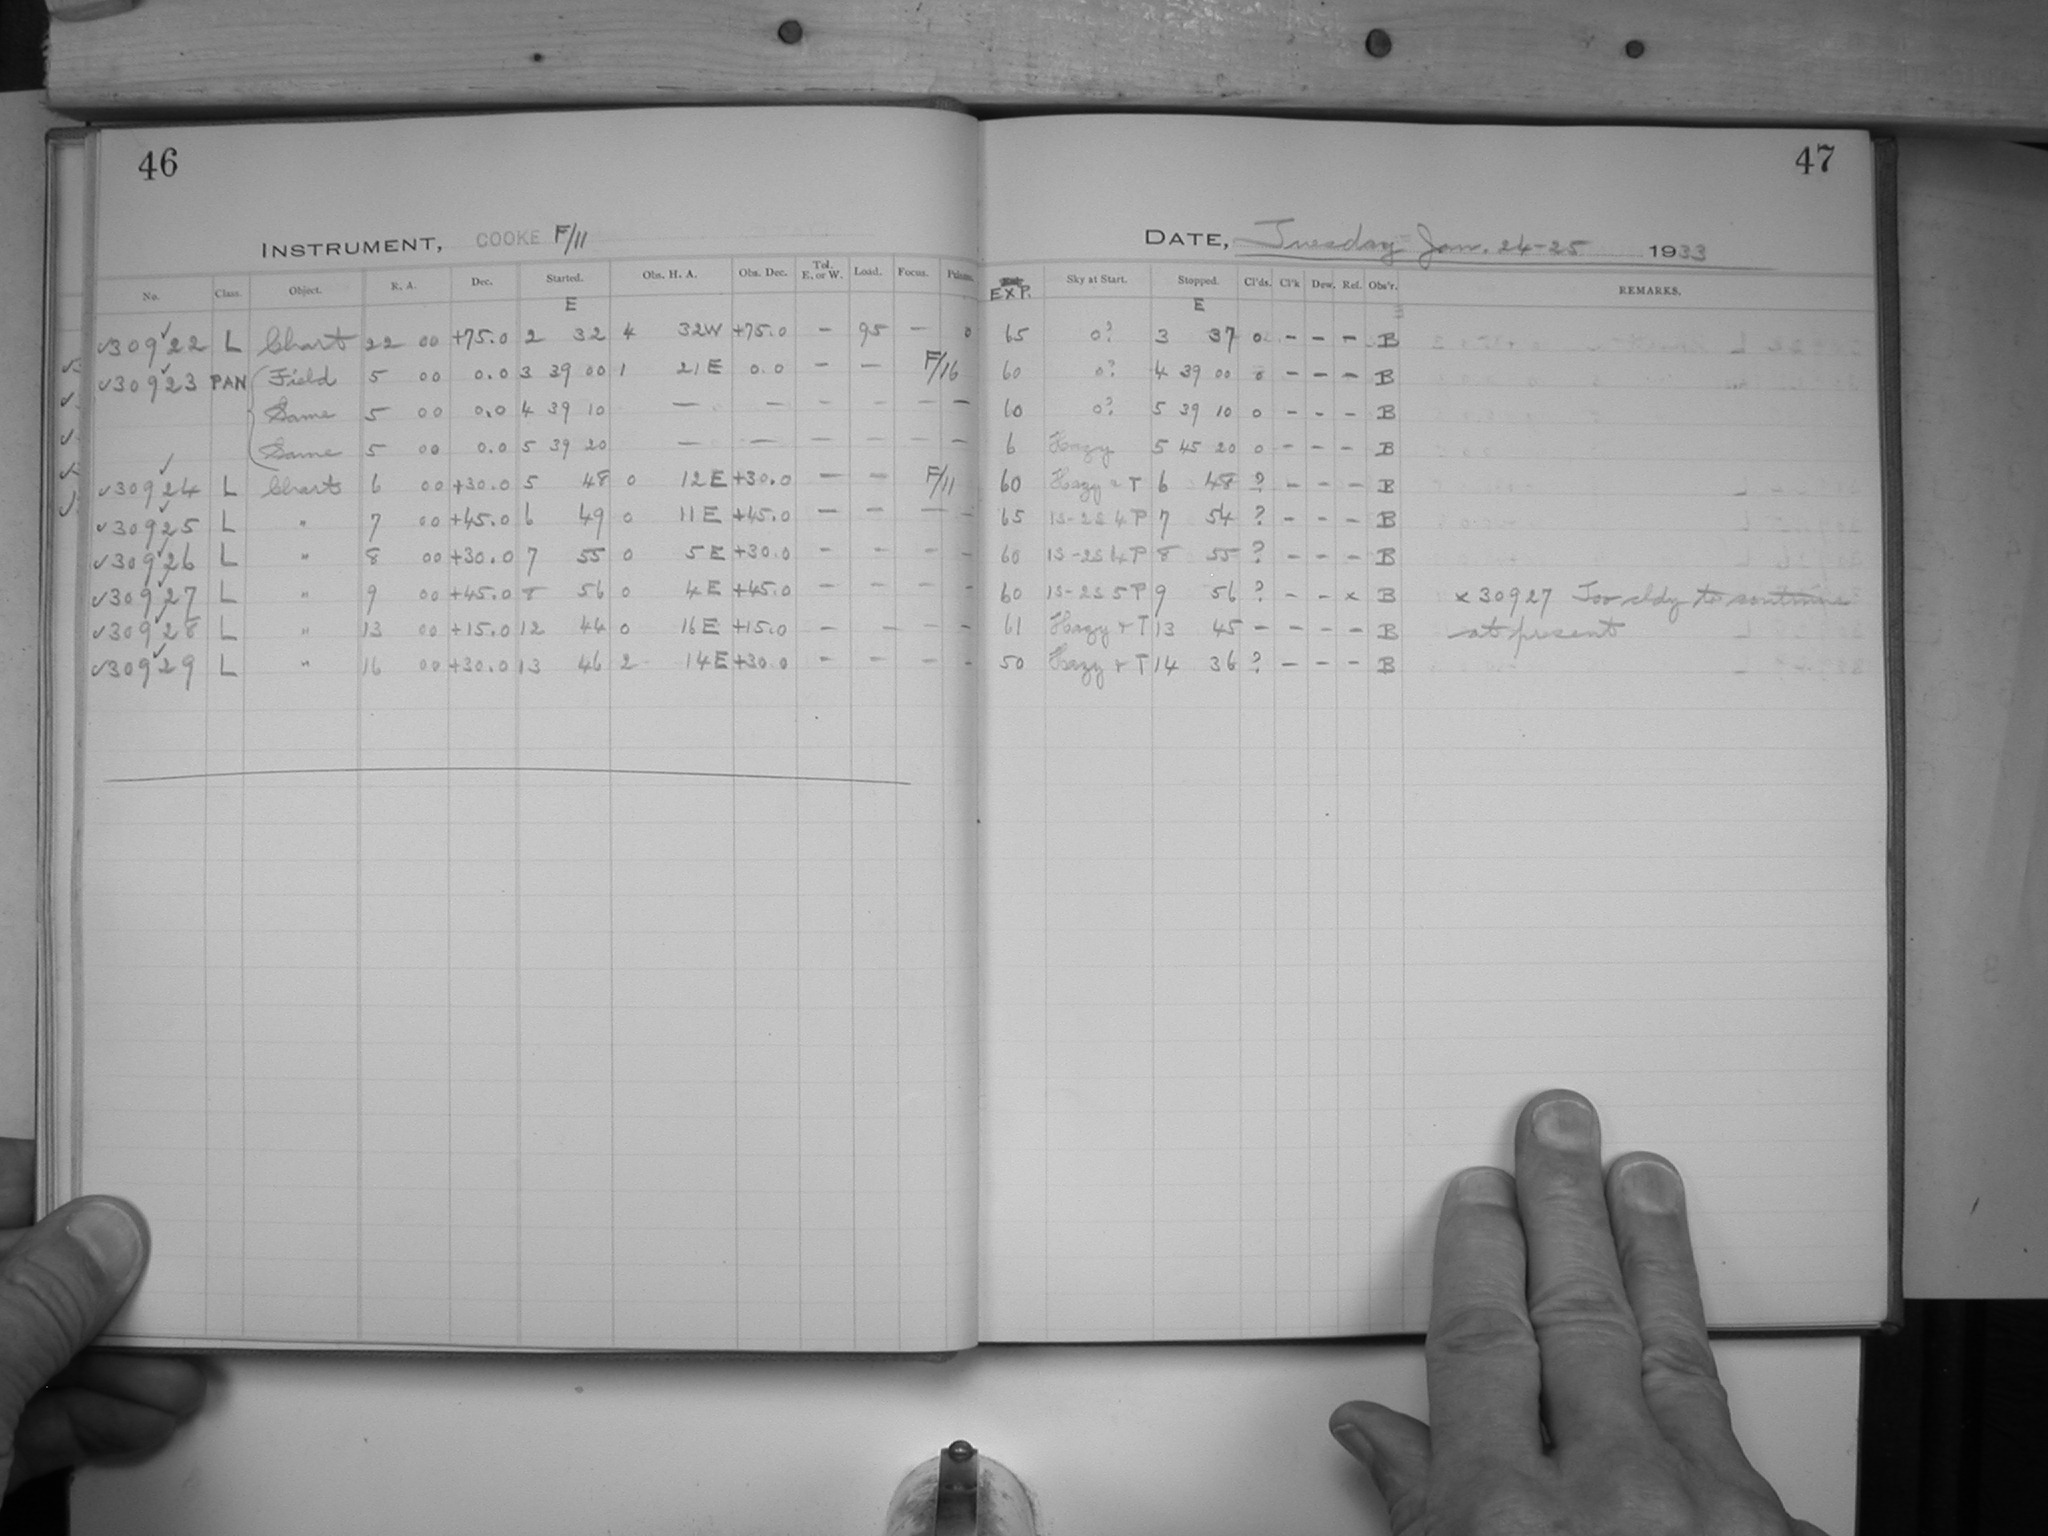 46
INSTRUMENT, COOKE F/11
No. Class. Object. R. A. Dec. Started. Obs. H. A. Obs. Dec. Tel. E. or W. Load. Focus.
E
✓30922 L Chart 22 00 +75.0 2 32 4 32W +75.0 - 95 - 0
✓30923 PAN Field 5 00 0.0 3 39 00 1 21E 0.0 - - F/16
Same 5 00 0.0 4 39 10 - - - - - -
Same 5 00 0.0 5 39 20 - - - - - -
✓30924 L Chart 6 00 +30.0 5 48 0 12E +30.0 - - F/11
✓30925 L " 7 00 +45.0 6 49 0 11E +45.0 - - - -
✓30926 L " 8 00 +30.0 7 55 0 5E +30.0 - - - -
✓30927 L " 9 00 +45.0 8 56 0 4E +45.0 - - - -
✓30928 L " 13 00 +15.0 12 44 0 16E +15.0 - - - -
✓30929 L " 16 00 +30.0 13 46 2 14E +30.0 - - - -
47
DATE, Tuesday Jan. 24-25 1933
EXP. Sky at Start. Stopped. Cl'ds. Cl'k Dew. Rel. Obs'r. REMARKS.
E
65 0? 3 37 0 - - - B
60 0? 4 39 00 0 - - - B
60 0? 5 39 10 0 - - - B
6 Hazy 5 45 20 0 - - - B
60 Hazy + T 6 48 ? - - - B
65 1S-2S 4P 7 54 ? - - - B
60 1S-2S 4P 8 55 ? - - - B
60 1S-2S 5P 9 56 ? - - x B x 30927 Too cldy to continue
61 Hazy + T 13 45 - - - - B at present
50 Hazy + T 14 36 ? - - - B